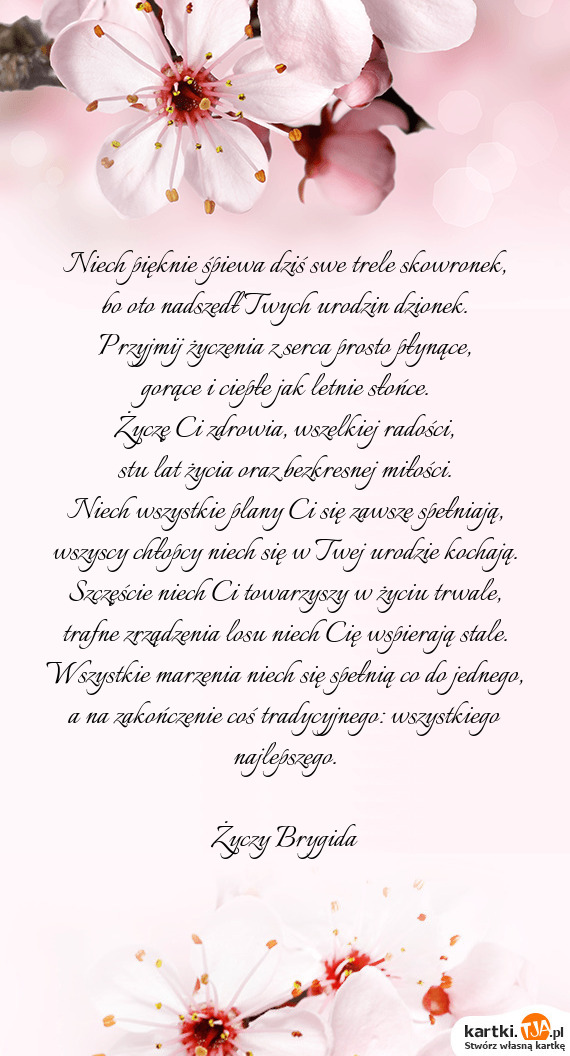 Niech pięknie śpiewa dziś swe trele skowronek,
bo oto nadszedł Twych urodzin dzionek.
Przyjmij życzenia z serca prosto płynące,
gorące i ciepłe jak letnie słońce.
Życzę Ci zdrowia, wszelkiej radości,
stu lat życia oraz bezkresnej miłości.
Niech wszystkie plany Ci się zawsze spełniają,
wszyscy chłopcy niech się w Twej urodzie kochają.
Szczęście niech Ci towarzyszy w życiu trwale,
trafne zrządzenia losu niech Cię wspierają stale.
Wszystkie marzenia niech się spełnią co do jednego,
a na zakończenie coś tradycyjnego: wszystkiego
najlepszego.
Życzy Brygida
kartki.TJA.pl
Stwórz własną kartkę